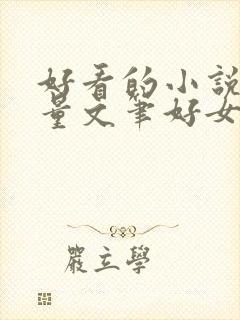 好看的小說
量文筆好女
嚴立學